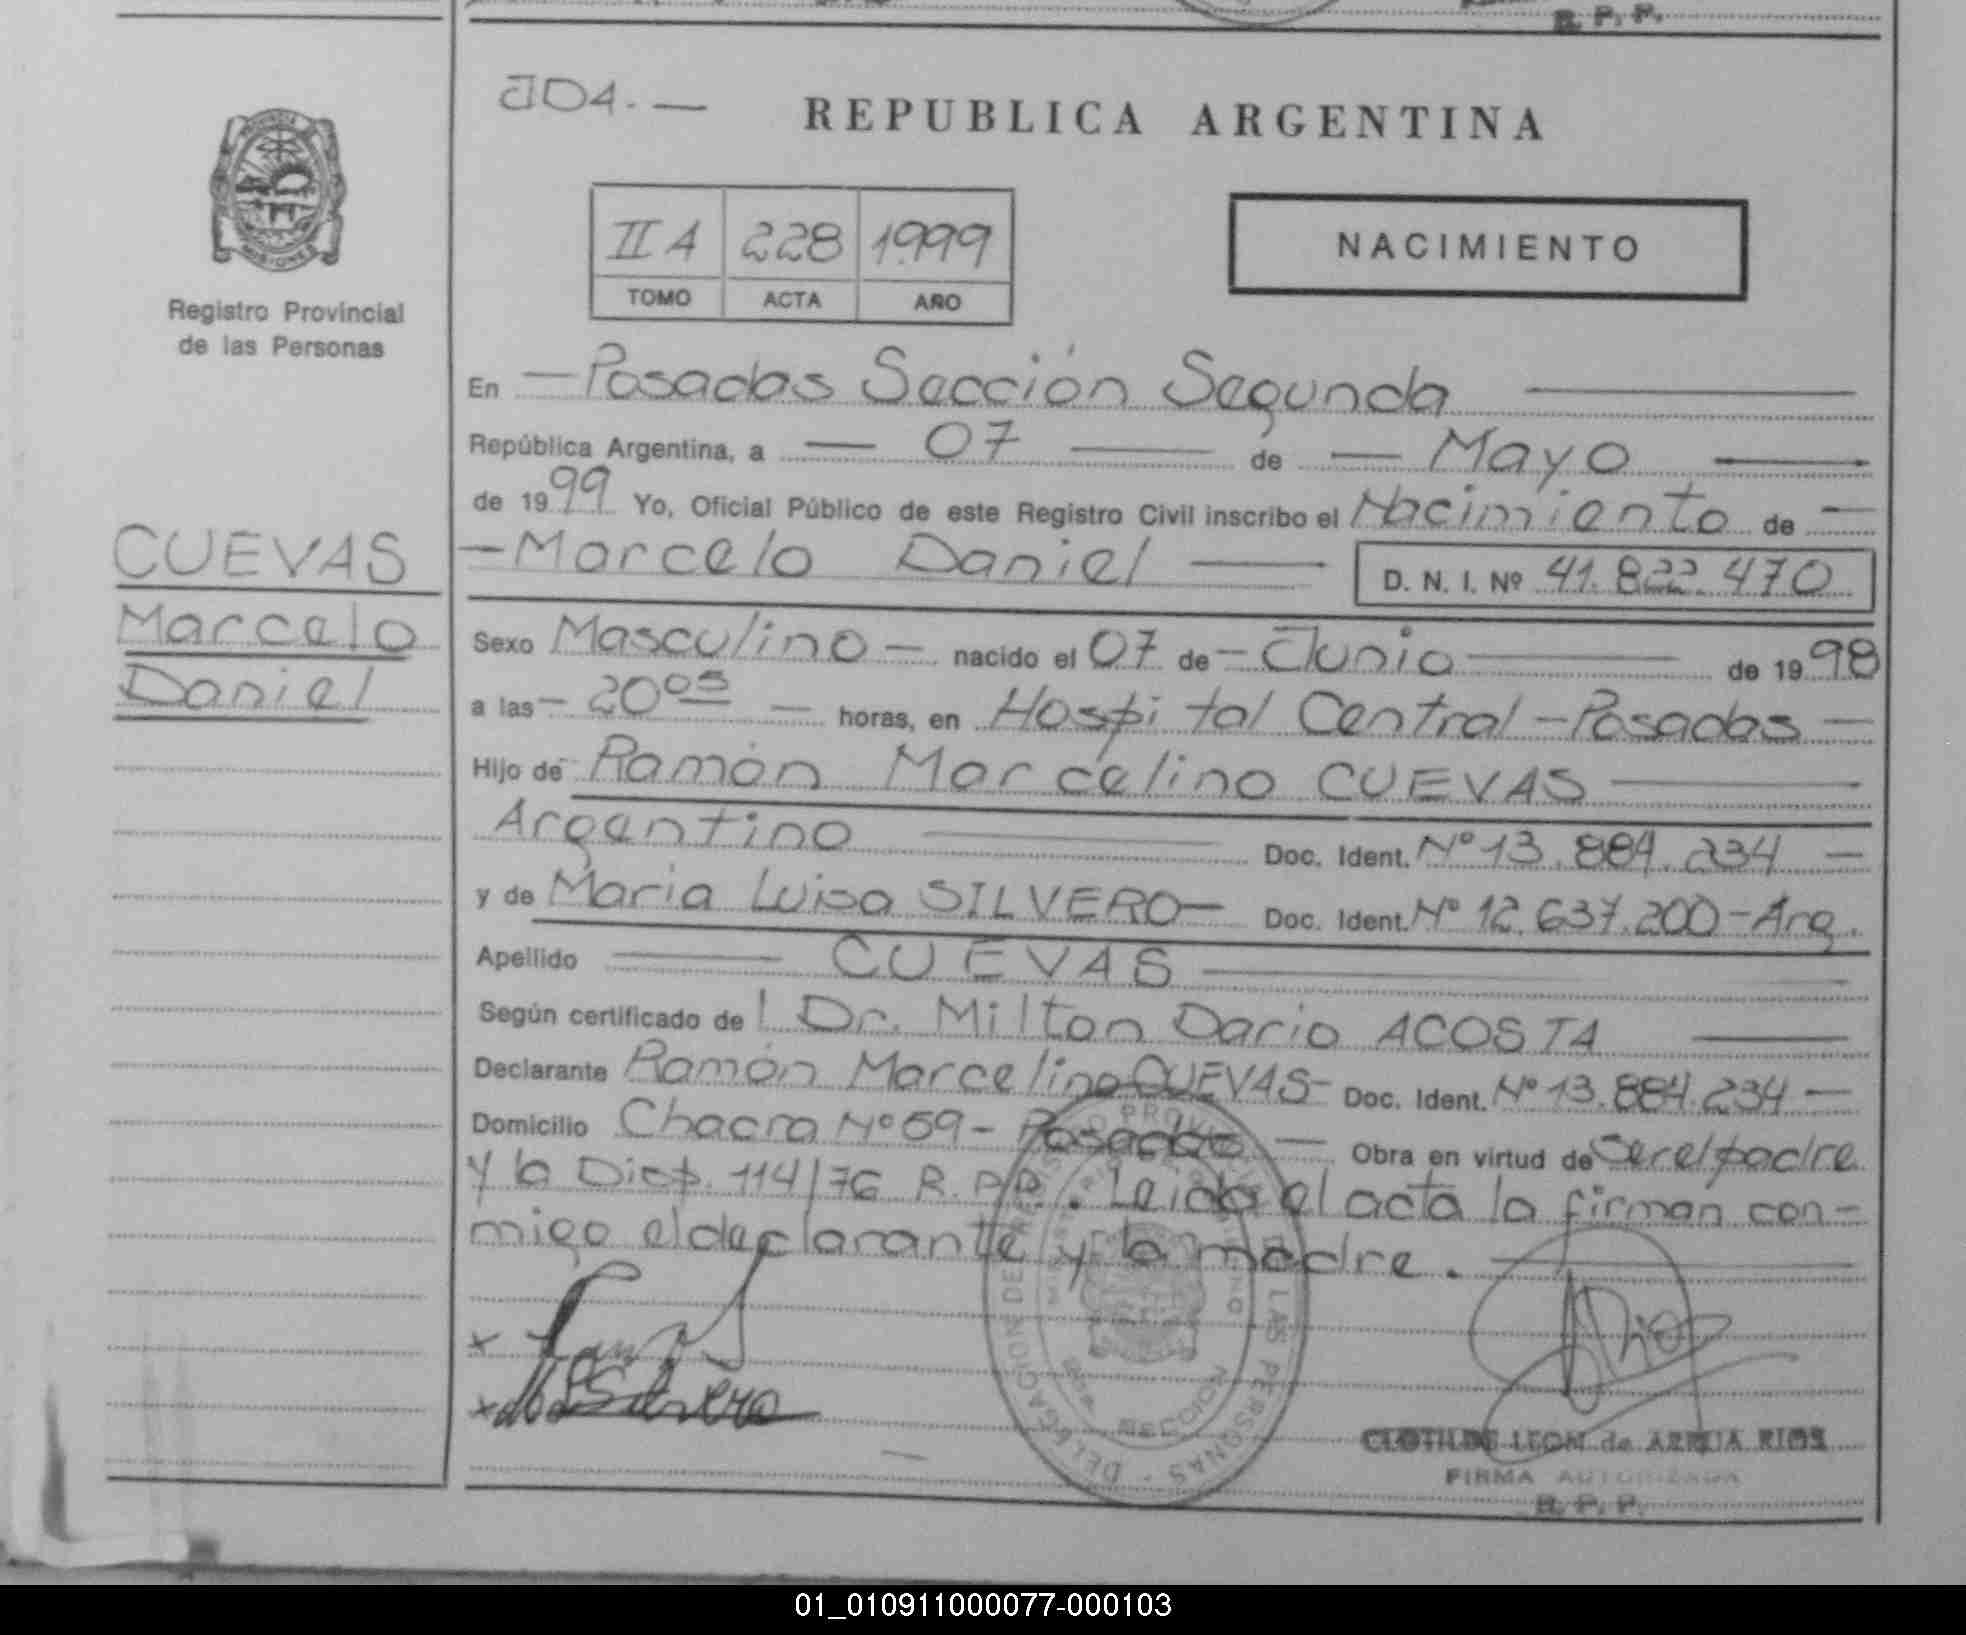 R. P. P.
JD4. —
REPUBLICA ARGENTINA
PROVINCIA DE
MISIONES
Registro Provincial
de las Personas
II A 228 1999
TOMO ACTA AÑO
NACIMIENTO
CUEVAS
Marcelo
Daniel
En — Posadas Sección Segunda —
República Argentina, a — 07 — de — Mayo —
de 1999 Yo, Oficial Público de este Registro Civil inscribo el Nacimiento de —
— Marcelo Daniel — D. N. I. Nº 41.822.470
Sexo Masculino — nacido el 07 de — Junio — de 1998
a las — 20⁰⁵ — horas, en Hospital Central — Posadas —
Hijo de Ramón Marcelino CUEVAS —
Argentino — Doc. Ident. Nº 13.884.234 —
y de Maria Luisa SILVERO — Doc. Ident. Nº 12.637.200 - Arg.
Apellido — CUEVAS —
Según certificado de l Dr. Milton Dario ACOSTA —
Declarante Ramón Marcelino CUEVAS - Doc. Ident. Nº 13.884.234 —
Domicilio Chacra Nº 59 - Posadas — Obra en virtud de ser el padre
y la Disp. 114/76 R.P.P. . Leida el acta la firman con-
migo el declarante y la madre. —
DELEGACION DE REGISTRO PROVINCIAL DE LAS PERSONAS
SECCION
x
x Silvero
Rios
CLOTILDE LEON de ARRUA RIOS
FIRMA AUTORIZADA
R. P. P.
01_010911000077-000103